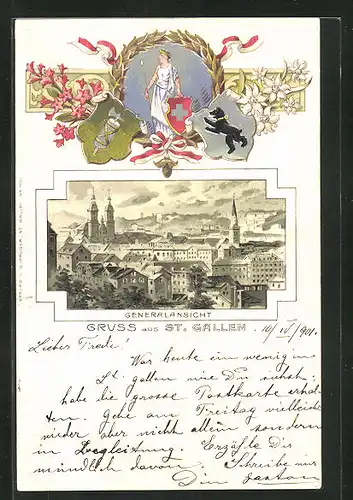 GENERALANSICHT
GRUSS AUS ST. GALLEN
10/IV/901.
Lieber Frede!
War heute ein wenig in
St. gallen wie Du siehst.
habe die grosse Postkarte erhal-
ten. Gehe am Freitag vielleicht
wieder aber nicht allein sondern
in Begleitung. Erzähle Dir
mündlich davon. Schreibe mir
Dein Gaston